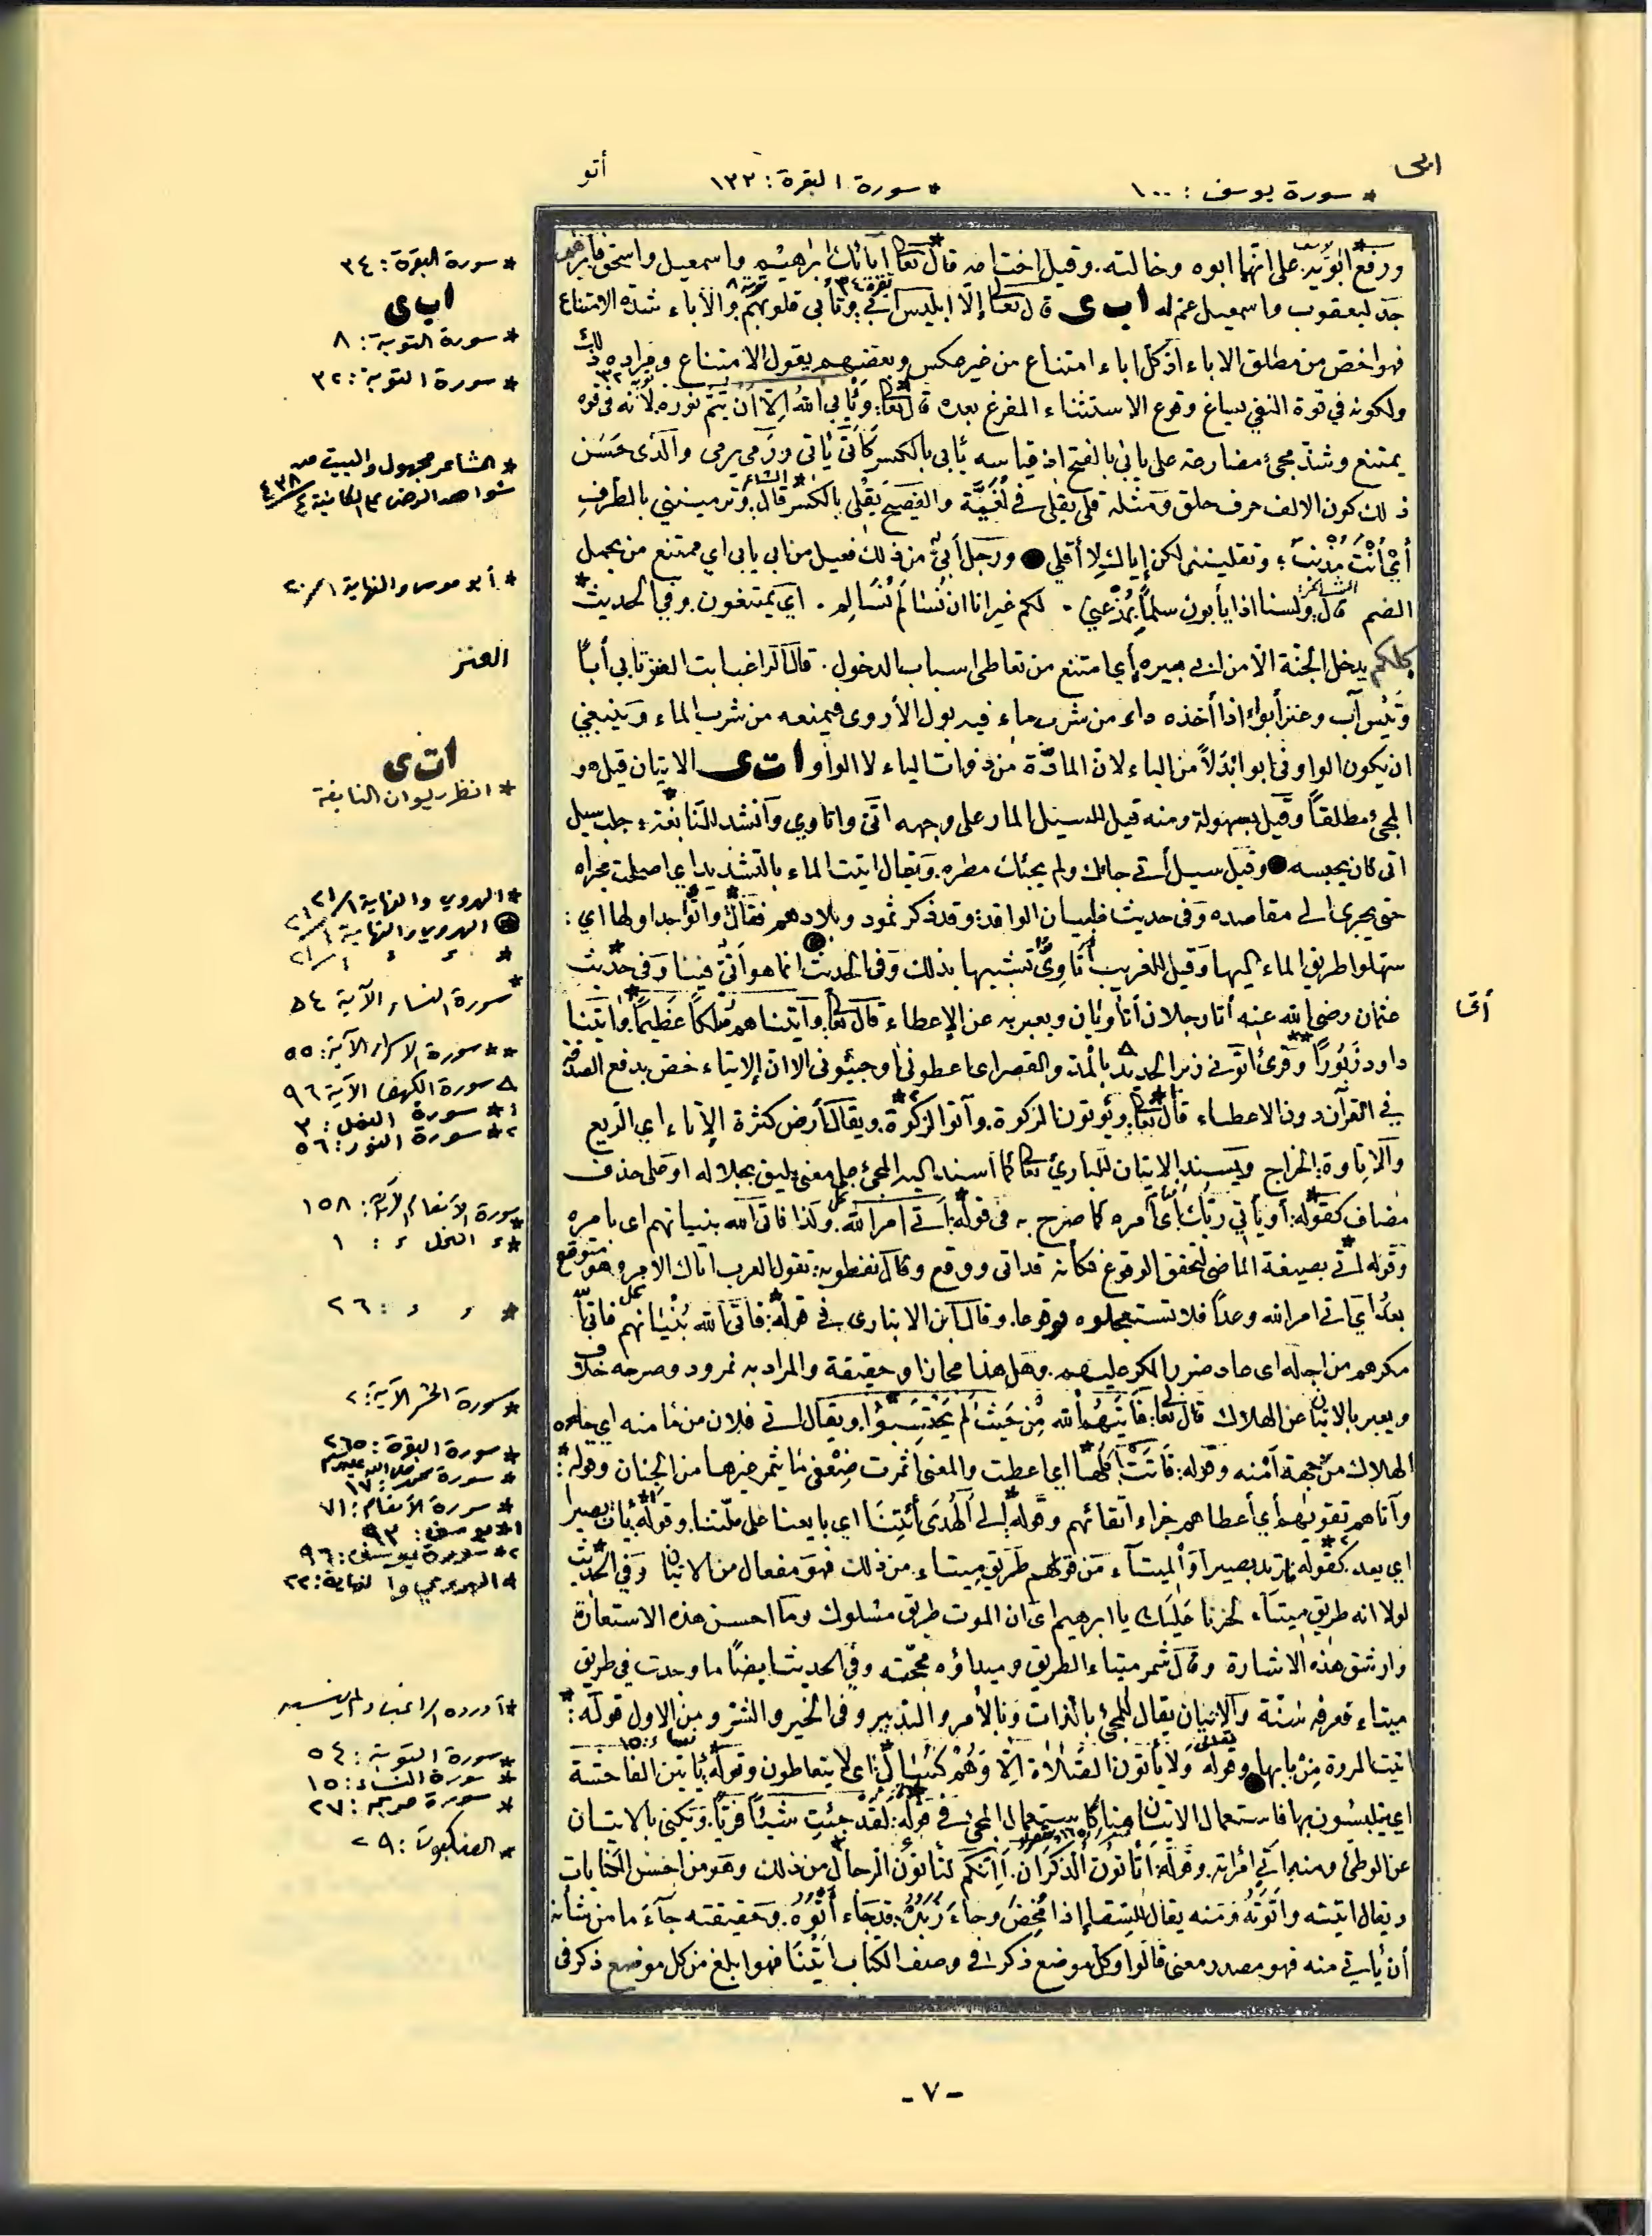 ابى
أتو
* سورة يوسف : ١٠٠
* سورة البقرة : ١٣٣
ورفع ابويه على انهما ابوه وخالته . وقيل اختا امه قال تعالى آبائك ابراهيم واسمعيل واسحق فابراهيم
جد ليعقوب واسمعيل عم له اب ى قال تعالى إلا ابليس أبى وتأبى قلوبهم والاباء شدة الامتناع
فهو اخص من مطلق الاباء اذ كل اباء امتناع من غير عكس وبعضهم يقول الامتناع ومراده ذلك
ولكونه في قوة النفي ساغ وقوع الاستثناء المفرغ بعده قال تعالى : ويأبى الله الا ان يتم نوره لأنه في قوة
يمتنع وشذ مجئ مضارعه على يأبى بالفتح اذ قياسه يأبي بالكسر كأتى يأتي ورمى يرمى والذى حسن
ذلك كون الالف حرف حلق ومثله قلى يقلى في لغية والفصيح يقلي بالكسر قال الشاعر وترمينني بالطرف
أي أنت مذنب ؛ وتقلينني لكن إياك لا أقلي ● ورجل أبي من ذلك فعيل من ابى يابى اي ممتنع من يحمل
الضم قال الشاعر ولسنا اذا يأبون سلماً بمذعني . لكم غير انا ان نسالم نسالم . اي يمتنعون وفي الحديث
كلكم يدخل الجنة الا من ابى أي امتنع من تعاطى اسباب الدخول . قال الراغب ابت العنز تابى أباً
وتيس آب وعنز أبواء اذا أخذه داء من شرب ماء فيه بول الأروى فيمنعه من شرب الماء وينبغي
ان يكون الواو في ابواء بدلاً من الياء لان المادة من ذوات الياء لا الواو ات ى الاتيان قيل هو
المجئ مطلقاً وقيل بسهولة ومنه قيل للسيل المار على وجهه اتى واتاوي وانشد للنابغة ؛ سيل
اتى كان يحبسه ● وقيل سيل أتى جاءك ولم يجئك مطره . ويقال اتيت الماء بالتشديد اي اصلحت مجراه
حتى يجرى الى مقاصده وفى حديث ظبيان الوافد : وقد ذكر ثمود وبلادهم فقال واتّوا جداولها اي :
سهلوا طريق الماء اليها وقيل للغريب أتاوي تشبيها بذلك وفى الحديث انما هو اتي فينا وفى حديث
عثمان رضي الله عنه أنا رجلان أتاويان ويعبر به عن الإعطاء قال تعالى . وآتيناهم ملكاً عظيماً . وآتينا
داود زبوراً وقرئ اتونى زبر الحديد بالمد والقصر اى اعطونى او جيئونى الا ان الإيتاء خص بدفع الصدقة
في القرآن دون الاعطاء قال تعالى ويؤتون الزكوة . وآتوا الزكوة . ويقال أرض كثيرة الإتاء اي الريع
والاتاوة : الخراج ويسند الاتيان للباري تعالى كما اسند اليه المجئ على معنى يليق بجلاله او على حذف
مضاف كقوله : أو يأتي ربك أي أمره كما صرح به في قوله : أتى امر الله . ولذا فاتى الله بنيانهم اى بامره
وقوله أتى بصيغة الماضى لتحقق الوقوع فكأنه قد اتى ووقع وقال نفطويه : تقول العرب اتاك الامر وهو متوقع
بعد اي اتى امر الله وعداً فلا تستعجلوه وقوعا . وقال ابن الانبارى في قوله : فاتى الله بنيانهم فاتى
مكرهم من اجله اى عاد ضرر المكر عليهم . وهل هذا مجاز او حقيقة والمراد به نمرود وصرحه خلاف
ويعبر بالاتيان عن الهلاك قال تعالى : فأتيهم الله من حيث لم يحتسبوا . ويقال أتى فلان من مأمنه اي جاءه
الهلاك من جهة أمنه وقوله : فآتت أكلها اي اعطت والمعنى أثمرت ضعفي ما يثمر غيرها من الجنان وقوله :
وآتاهم تقويهم أي أعطاهم جزاء اتقائهم وقوله إلى الهدى أئتنا اي بايعنا على ملتنا . وقوله يأت بصيرا
اي يعد . كقوله : يرتد بصيرا والميتآء من قولهم طريق ميتاء . من ذلك فهو مفعال من الاتيان وفي الحديث
لولا انه طريق ميتآء لحزنا عليك يا ابرهيم اى ان الموت طريق مسلوك وما احسن هذه الاستعارة
وارشق هذه الاشارة وقال شمر ميتاء الطريق وميداؤه محجته وفي الحديث ايضاً ما وجدت في طريق
ميتاء فعرفه سنة والاتيان يقال للمجئ بالذات وبالأمر والتدبير وفى الخير والشر ومن الاول قوله :
اتيت المروة من بابها ● وقوله تعالى ولا يأتون الصلاة الا وهم كسالى : اى لا يتعاطون وقوله يأتين الفاحشة
اي يتلبسون بها فاستعمال الاتيان هنا كاستعمال المجئ في قوله : لقد جئت شيئاً فرياً . ويكنى بالاتيان
عن الوطئ ومنه اتى امرأته . وقوله : أتأتون الذكران . أئنكم لتأتون الرجال من ذلك وهو من احسن الكنايات
ويقال اتيته واتوته ومنه يقال للسقاء إذا مخض وجاء زبده : قد جاء أتوه . وحقيقته جآء ما من شأنه
أن يأتي منه فهو مصدر معنى قالوا وكل موضع ذكر في وصف الكتاب اتينا فهو ابلغ من كل موضع ذكر في
* سورة البقرة : ٣٤
اب ى
* سورة التوبة : ٨
* سورة التوبة : ٣٢
* الشاعر مجهول والبيت من
شواهد الرضى على الكافية ٤/٤٣٨
* أبو موسى والنهاية ١/٢٠
العنز
ات ى
* انظر ديوان النابغة
* الهروي والنهاية ١/٢١
● الهروي والنهاية ١/٢١
* ، ، ١/٢١
* سورة النساء الآية ٥٤
أتى
** سورة الاسراء الآية : ٥٥
٨ سورة الكهف الآية ٩٦
١* سورة النمل : ٣
٢* سورة النور : ٥٦
* سورة الأنعام الآية : ١٥٨
* ، النحل ، : ١
* ، ، : ٢٦
* سورة الحشر الآية : ٢
* سورة البقرة : ٢٦٥
* سورة محمد صلى الله عليه وسلم : ١٧
* سورة الأنعام : ٧١
١* يوسف : ٩٣
٢* سورة يوسف : ٩٦
* الهروي والنهاية : ٢٢
* أورده الراغب ولم ينسبه
* سورة التوبة : ٥٤
* سورة النساء : ١٥
* سورة مريم : ٢٧
* العنكبوت : ٢٩
- ٧ -